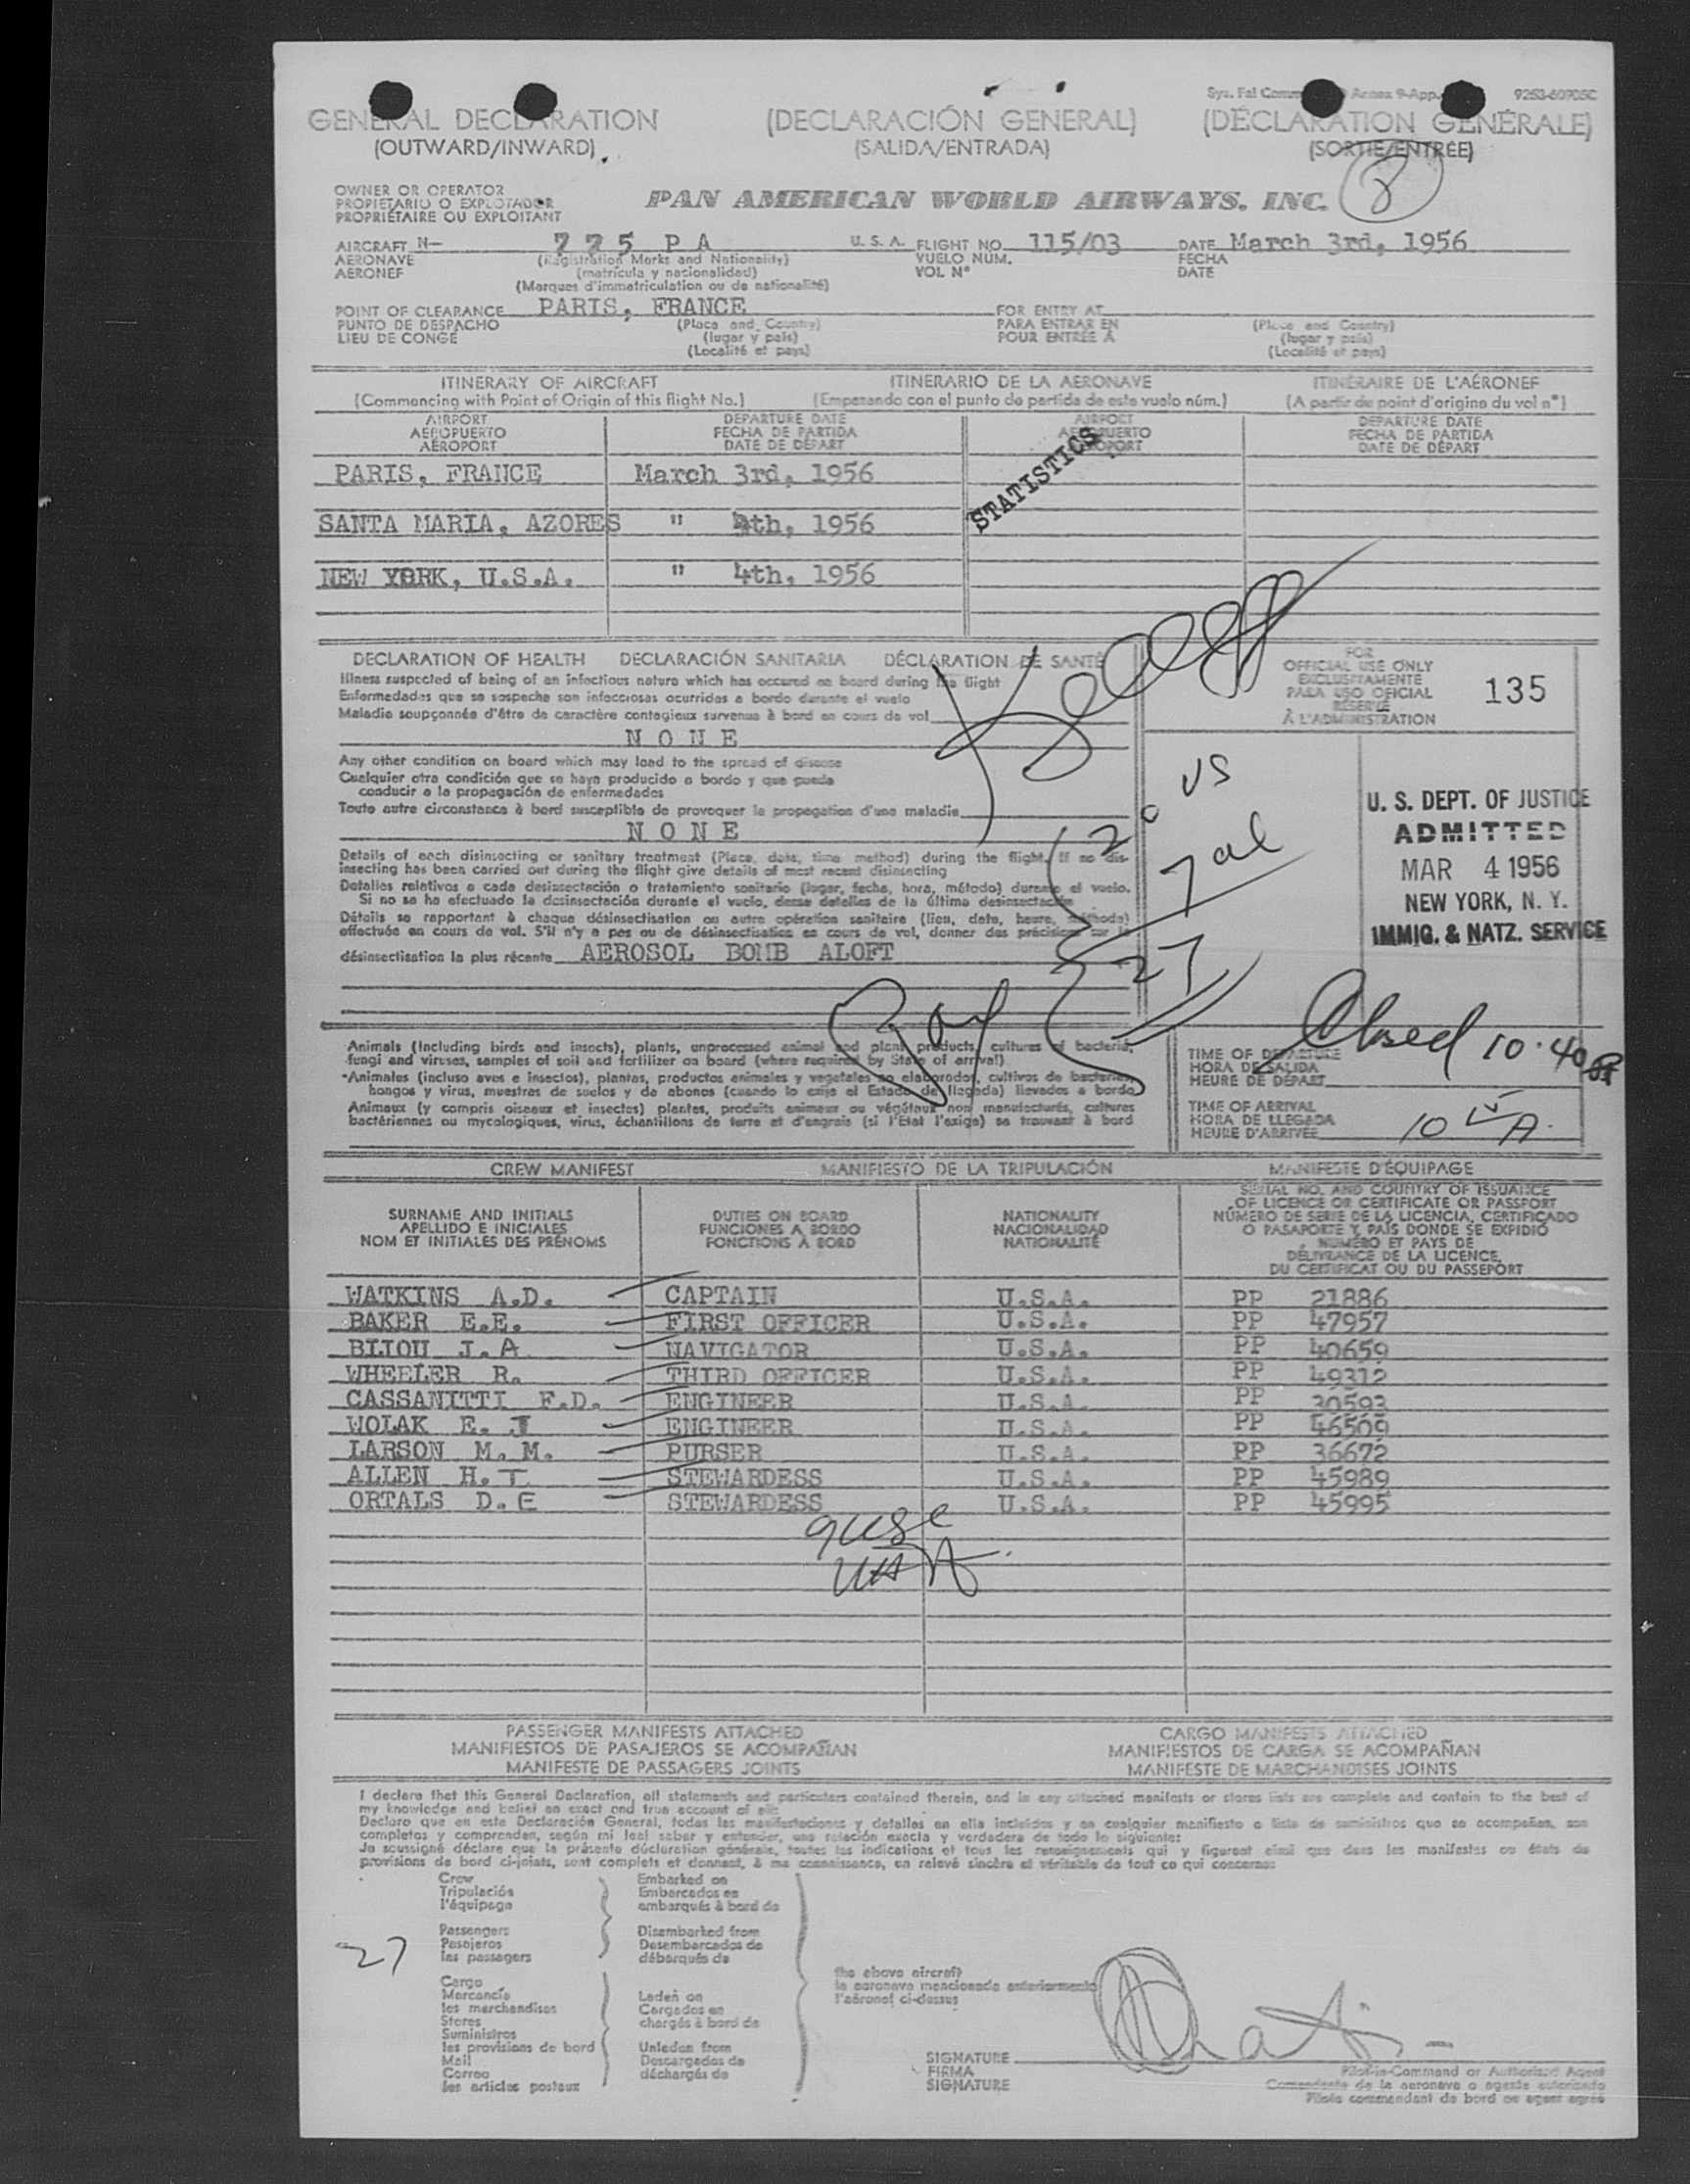 Sys. Fal Comm Annex 9-App. 9253-60705C
GENERAL DECLARATION (DECLARACIÓN GENERAL) (DÉCLARATION GÉNÉRALE)
(OUTWARD/INWARD) (SALIDA/ENTRADA) (SORTIE/ENTRÉE)
8
OWNER OR OPERATOR
PROPIETARIO O EXPLOTADOR
PROPRIÉTAIRE OU EXPLOITANT
PAN AMERICAN WORLD AIRWAYS, INC.
AIRCRAFT N- 725 P A U. S. A. FLIGHT NO. 115/03 DATE March 3rd, 1956
AERONAVE (Registration Marks and Nationality) VUELO NÚM. FECHA
AÉRONEF (matrícula y nacionalidad) VOL N° DATE
(Marques d'immatriculation ou de nationalité)
POINT OF CLEARANCE PARIS, FRANCE FOR ENTRY AT
PUNTO DE DESPACHO (Place and Country) PARA ENTRAR EN (Place and Country)
LIEU DE CONGÉ (lugar y país) POUR ENTRÉE À (lugar y país)
(Localité et pays) (Localité et pays)
ITINERARY OF AIRCRAFT ITINERARIO DE LA AERONAVE ITINÉRAIRE DE L'AÉRONEF
(Commencing with Point of Origin of this flight No.) (Empezando con el punto de partida de este vuelo núm.) (A partir de point d'origine du vol n°)
AIRPORT DEPARTURE DATE AIRPORT DEPARTURE DATE
AEROPUERTO FECHA DE PARTIDA AEROPUERTO FECHA DE PARTIDA
AÉROPORT DATE DE DÉPART AÉROPORT DATE DE DÉPART
STATISTICS
PARIS, FRANCE March 3rd, 1956
SANTA MARIA, AZORES " 4th, 1956
NEW YORK, U.S.A. " 4th, 1956
DECLARATION OF HEALTH DECLARACIÓN SANITARIA DÉCLARATION DE SANTÉ
Illness suspected of being of an infectious nature which has occured on board during the flight
Enfermedades que se sospeche son infecciosas ocurridas a bordo durante el vuelo
Maladie soupçonnée d'être de caractère contagieux survenue à bord en cours de vol
NONE
Any other condition on board which may lead to the spread of disease
Cualquier otra condición que se haya producido a bordo y que pueda
conducir a la propagación de enfermedades
Toute autre circonstance à bord susceptible de provoquer la propagation d'une maladie
NONE
Details of each disinsecting or sanitary treatment (Place, date, time method) during the flight. If no dis-
insecting has been carried out during the flight give details of most recent disinsecting
Detalles relativos a cada desinsectación o tratamiento sanitario (lugar, fecha, hora, método) durante el vuelo.
Si no se ha efectuado la desinsectación durante el vuelo, dense detalles de la última desinsectación
Détails se rapportant à chaque désinsectisation ou autre opération sanitaire (lieu, date, heure, méthode)
effectuée en cours de vol. S'il n'y a pas eu de désinsectisation en cours de vol, donner des précisions sur la
désinsectisation la plus récente AEROSOL BOMB ALOFT
FOR
OFFICIAL USE ONLY
EXCLUSITAMENTE
PARA USO OFICIAL
RÉSERVÉ
À L'ADMINISTRATION
135
20 US
7 al
27
U. S. DEPT. OF JUSTICE
ADMITTED
MAR 4 1956
NEW YORK, N. Y.
IMMIG. & NATZ. SERVICE
Animals (Including birds and insects), plants, unprocessed animal and plant products, cultures of bacteria,
fungi and viruses, samples of soil and fertilizer on board (where required by State of arrival)
Animales (incluso aves e insectos), plantas, productos animales y vegetales no elaborados, cultivos de bacterias,
hongos y virus, muestras de suelos y de abonos (cuando lo exija el Estado de llegada) llevados a bordo
Animaux (y compris oiseaux et insectes) plantes, produits animaux ou végétaux non manufacturés, cultures
bactériennes ou mycologiques, virus, échantillons de terre et d'engrais (si l'État l'exige) se trouvant à bord
Closed 10:40
TIME OF DEPARTURE
HORA DE SALIDA
HEURE DE DÉPART
TIME OF ARRIVAL
HORA DE LLEGADA
HEURE D'ARRIVÉE
CREW MANIFEST MANIFIESTO DE LA TRIPULACIÓN MANIFESTE D'ÉQUIPAGE
SURNAME AND INITIALS
APELLIDO E INICIALES
NOM ET INITIALES DES PRÉNOMS
DUTIES ON BOARD
FUNCIONES A BORDO
FONCTIONS À BORD
NATIONALITY
NACIONALIDAD
NATIONALITÉ
SERIAL NO. AND COUNTRY OF ISSUANCE
OF LICENCE OR CERTIFICATE OR PASSPORT
NÚMERO DE SERIE DE LA LICENCIA, CERTIFICADO
O PASAPORTE Y PAÍS DONDE SE EXPIDIÓ
NUMÉRO ET PAYS DE
DÉLIVRANCE DE LA LICENCE,
DU CERTIFICAT OU DU PASSEPORT
WATKINS A.D. CAPTAIN U.S.A. PP 21886
BAKER E.E. FIRST OFFICER U.S.A. PP 47957
BIJOU J.A NAVIGATOR U.S.A. PP 40659
WHEELER R. THIRD OFFICER U.S.A. PP 49312
CASSANITTI F.D. ENGINEER U.S.A. PP 30593
WOLAK E. J ENGINEER U.S.A. PP 46509
LARSON M. M. PURSER U.S.A. PP 36672
ALLEN H.T. STEWARDESS U.S.A. PP 45989
ORTALS D.E STEWARDESS U.S.A. PP 45995
PASSENGER MANIFESTS ATTACHED CARGO MANIFESTS ATTACHED
MANIFIESTOS DE PASAJEROS SE ACOMPAÑAN MANIFIESTOS DE CARGA SE ACOMPAÑAN
MANIFESTE DE PASSAGERS JOINTS MANIFESTE DE MARCHANDISES JOINTS
I declare that this General Declaration, all statements and particulars contained therein, and in any attached manifests or stores lists are complete and contain to the best of
my knowledge and belief an exact and true account of all:
Declaro que en esta Declaración General, todas las manifestaciones y detalles en ella incluidos y en cualquier manifiesto o lista de suministros que se acompañen, son
completos y comprenden, según mi leal saber y entender, una relación exacta y verdadera de todo lo siguiente:
Je soussigné déclare que la présente déclaration générale, toutes les indications et tous les renseignements qui y figurent ainsi que dans les manifestes ou états de
provisions de bord ci-joints, sont complets et donnent, à ma connaissance, un relevé sincère et véritable de tout ce qui concerne:
Crew Embarked on
Tripulación Embarcados en
l'équipage embarqués à bord de
Passengers Disembarked from
Pasajeros Desembarcados de
les passagers débarqués de
27
Cargo
Mercancía Laden on
les marchandises Cargados en
Stores chargés à bord de
Suministros
les provisions de bord Unladen from
Mail Descargados de
Correo déchargés de
les articles postaux
the above aircraft
la aeronave mencionada anteriormente
l'aéronef ci-dessus
SIGNATURE
FIRMA
SIGNATURE
Pilot-in-Command or Authorized Agent
Comandante de la aeronave o agente autorizado
Pilote commandant de bord ou agent agréé